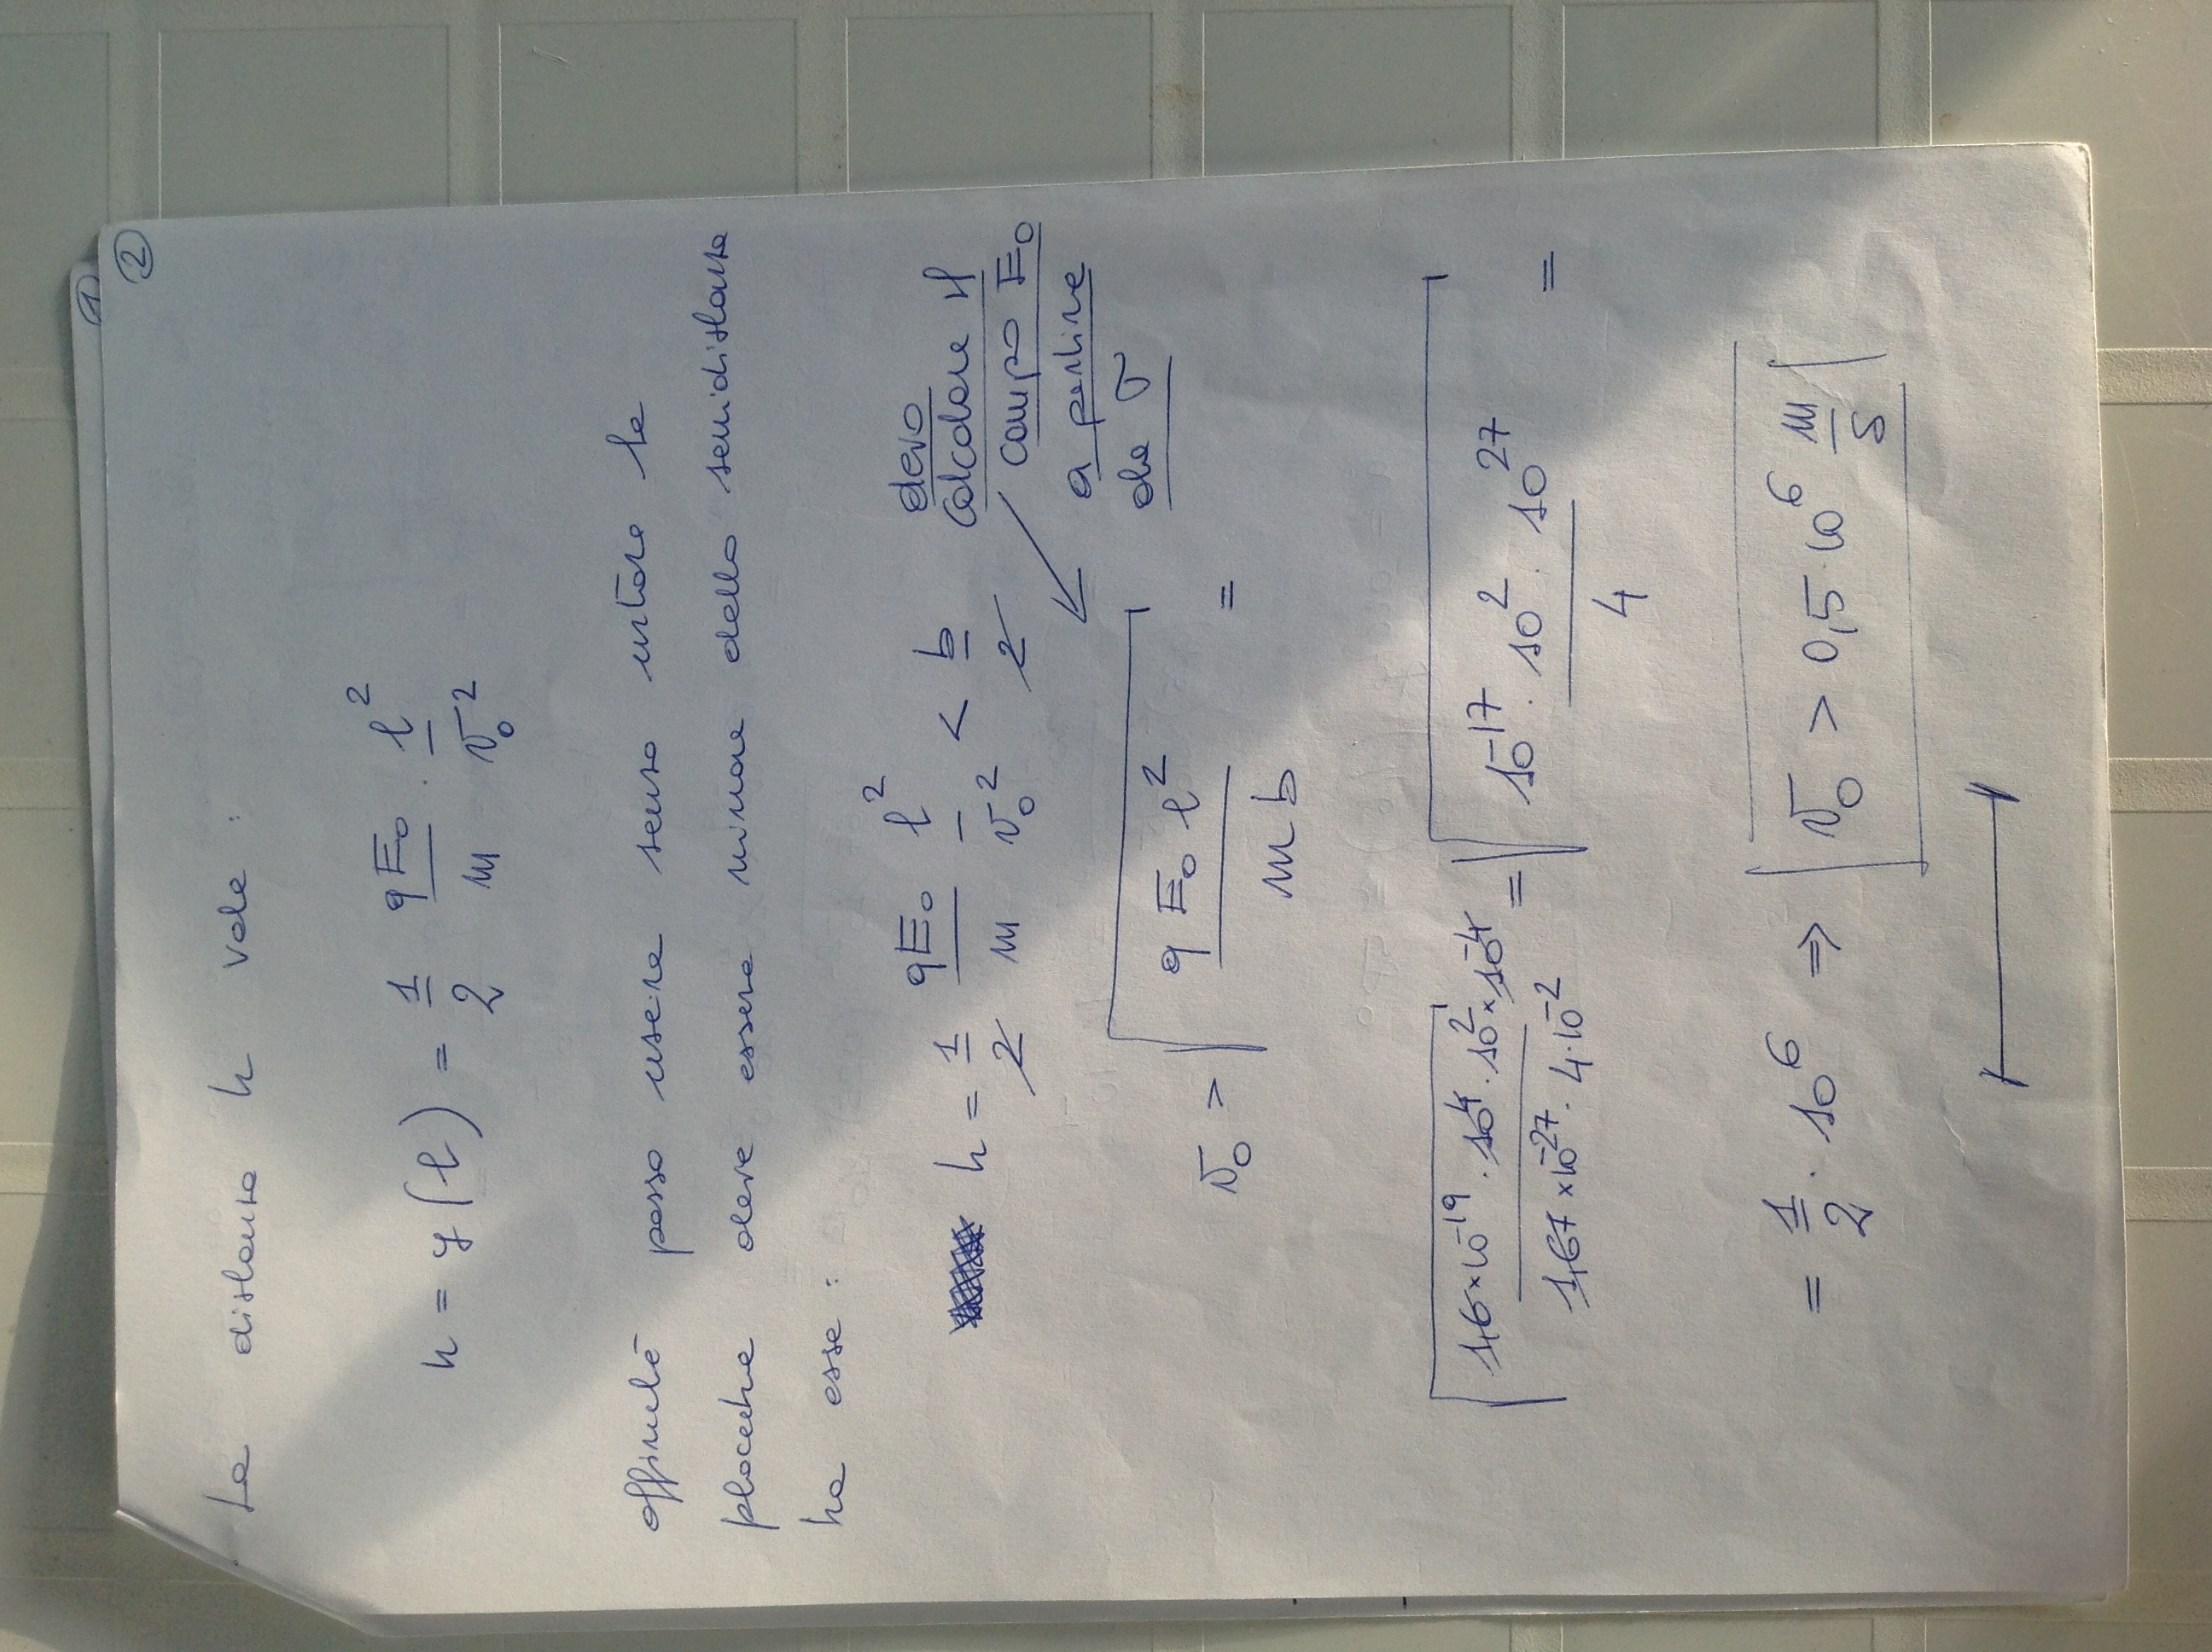 1
2
La distanza h vale :
h = y(l) = 1/2 qE₀/m · l²/v₀²
affinché possa uscire senza urtare le
placche deve essere minore della semidistanza
tra esse :
h = 1/2 qE₀/m l²/v₀² < b/2
devo
calcolare il
campo E₀
a partire
da σ
v₀ > √(q E₀ l²/(m b)) =
√(1,6×10⁻¹⁹ · 10⁴ · 10² × 10⁻⁴/(1,67×10⁻²⁷ · 4·10⁻²)) = √(10⁻¹⁷ · 10² · 10²⁷/4) =
= 1/2 · 10⁶ ⇒ v₀ > 0,5·10⁶ m/s